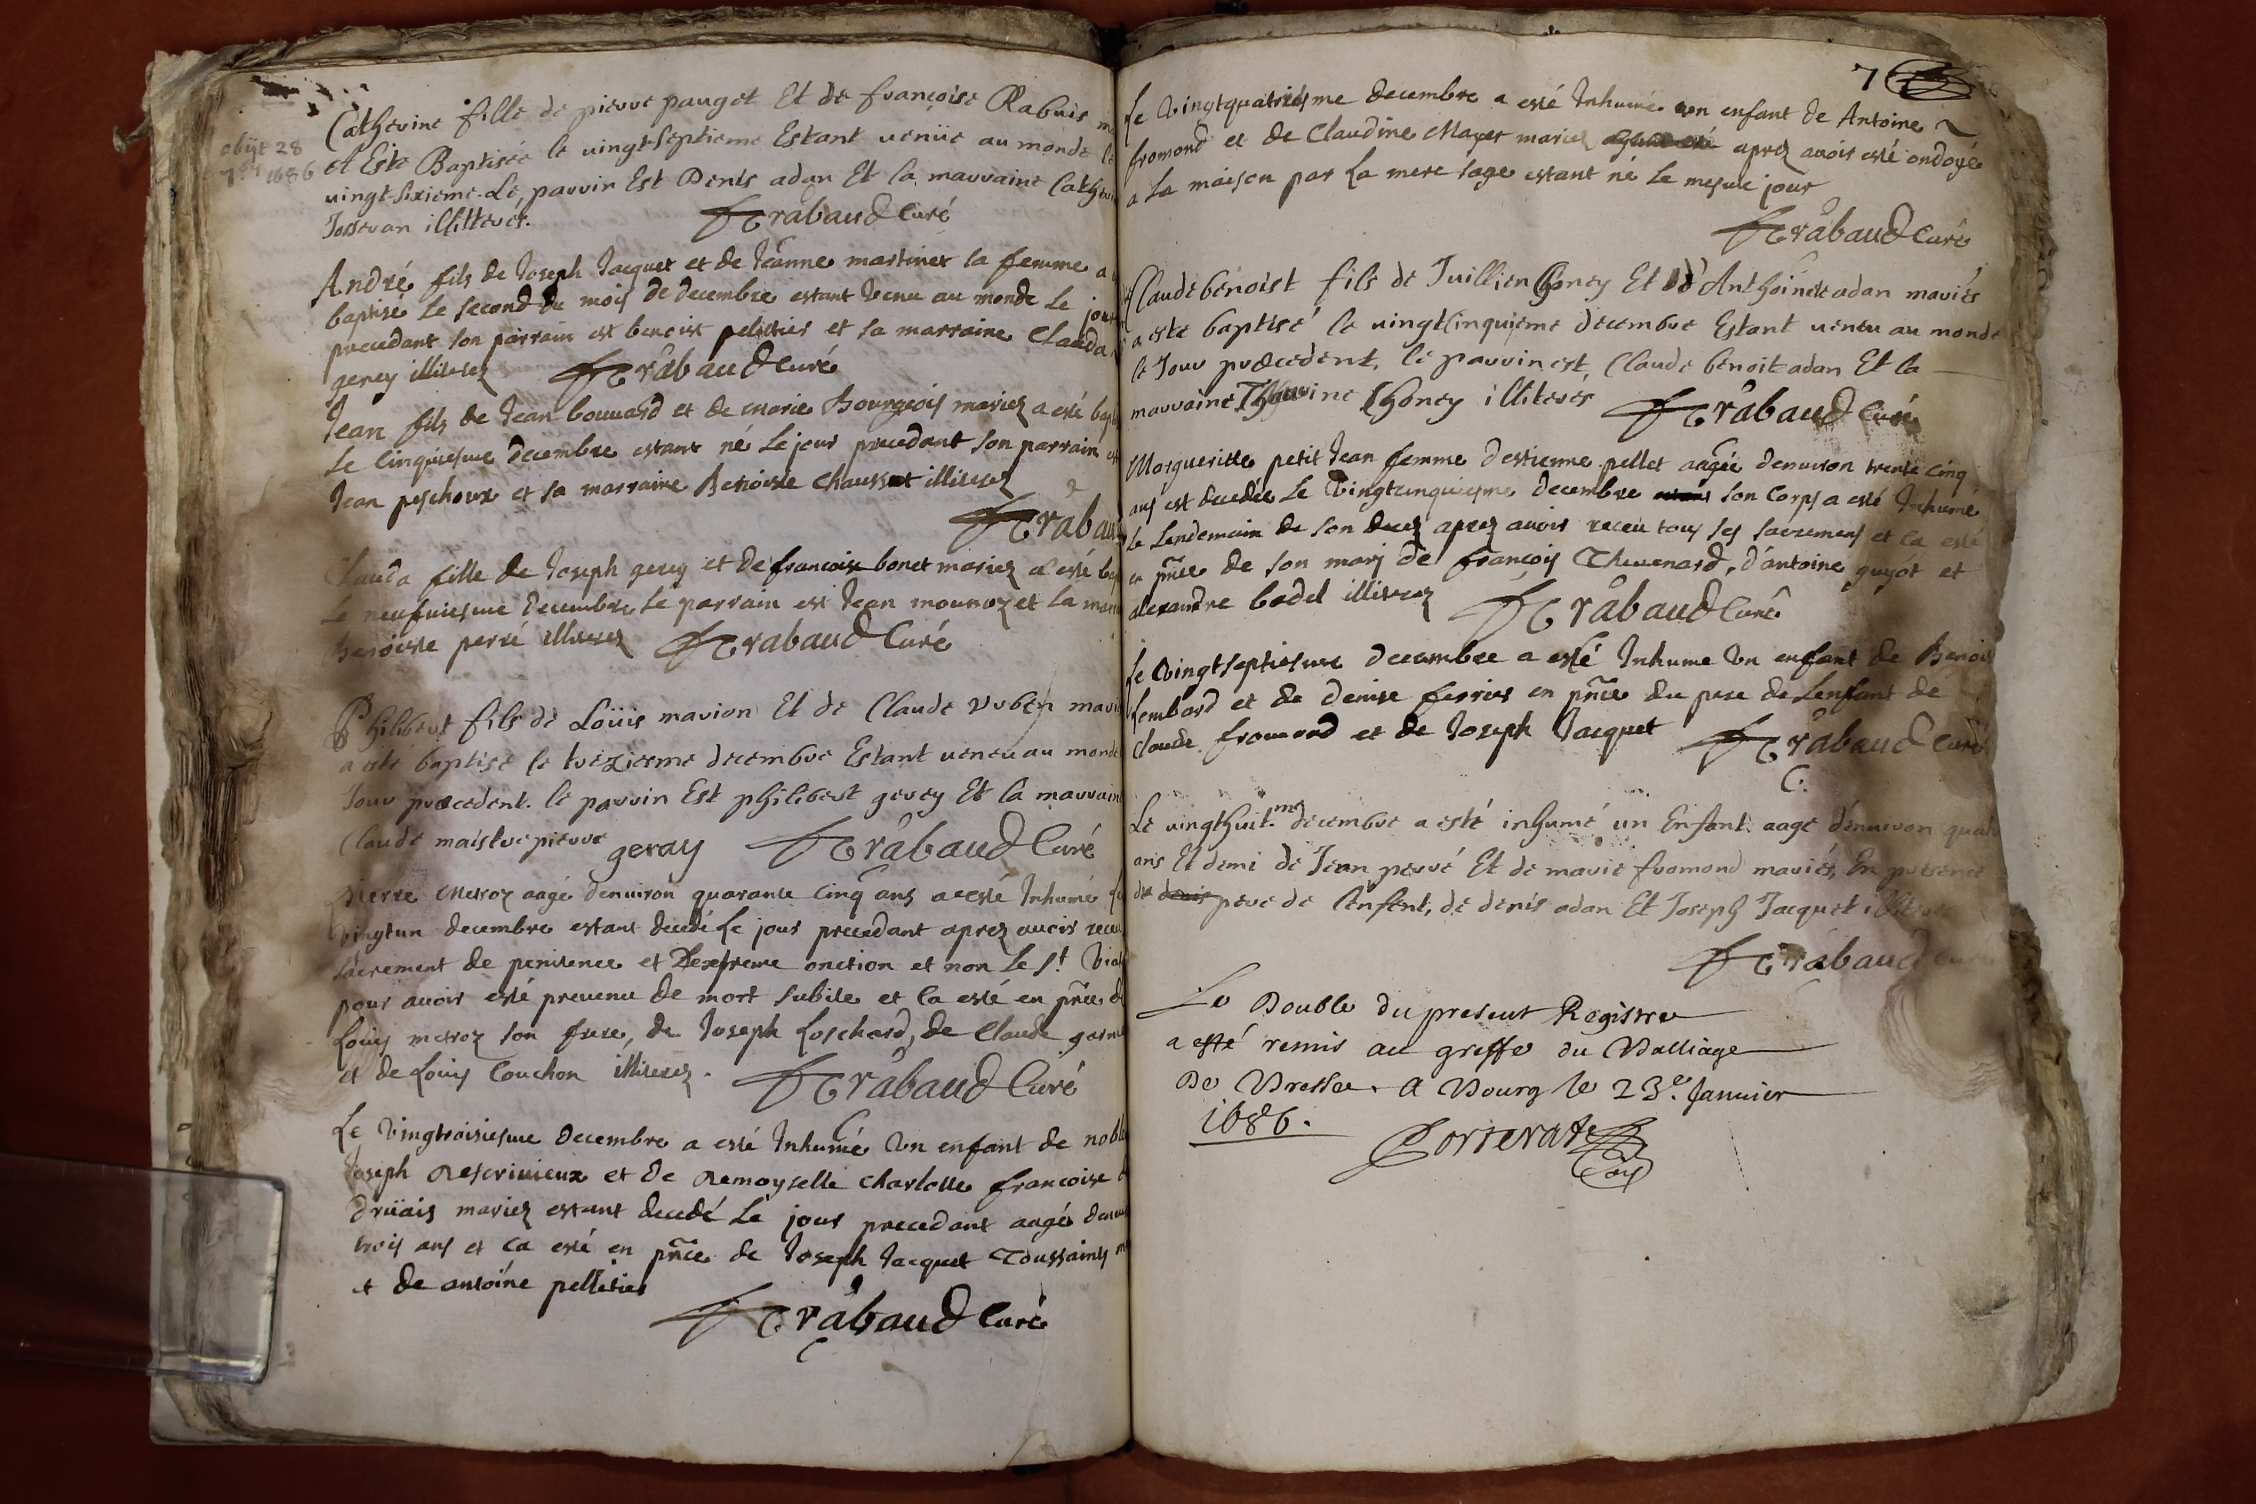 obijt 28
7bri 1686
Catherine fille de pierre pauget Et de françoise Rabuis
A Este Baptisée le vingt-septieme Estant venüe au monde le
vingt-sixieme. Le parrin Est Denis adan Et la marraine Cathe
Josseran illitterés.
Trabaud Curé
André fils de Joseph Jacquet et de Jeanne martinet sa femme a
baptisé le second du mois de decembre estant venu au monde le jour
precedant son parrain est benoist pelletier et sa marraine Clauda
gerey illiterez
Trabaud Curé
Jean fils de Jean bouuard et de marie Bourgeois mariez a esté bap
le cinquiesme decembre estant né le jour precedant son parrain
Jean peschoux et sa marraine Benoiste Chaussat illiterez
Trabau
Clauda fille de Joseph gerey et de francoise bonet mariez a esté bap
le neufuiesme decembre le parrain est Jean mounoz et la mar
Benoiste perré illiterez
Trabaud Curé
Philibert fils de Loüis marion Et de Claude Ruben mari
a esté baptisé le treziesme decembre Estant veneu au monde
Jour præcedent. le parrin Est philibert gerey Et la marrain
Claude maistre pierre
geray
Trabaud Curé
Pierre Metroz aagé denuiron quarante cinq ans a esté Inhumé le
vingtun decembre estant decedé le jour precedant aprez auoir receu
sacrement de penitence et Lextreme onction et non le St. Viat
pour auoir esté preuenu de mort subite et ca esté en pnce de
Louys metroz son frere, de Joseph Loschard, de Claude
et de Louis Couchon illiterez.
Trabaud Curé
Le Vingtroisiesme decembre a esté Inhumé vn enfant de noble
Joseph Descriuieux et de Demoyselle Charlotte françoise
Drüais mariez estant decedé le jour precedant aagé denui
trois ans et ca esté en pnce de Joseph Jacquet Toussaints
et de antoine pelletier
Trabaud Curé
7
Le Vingtquatriesme decembre a esté Inhumé vn enfant de Antoine
fromond et de Claudine Mayet mariez aprez auoir esté ondoyé
a la maison par la mere sage estant né le mesme jour
Trabaud Curé
Claude benoist fils de Juillien Choney Et de Anthoinete adan mariés
a esté baptisé le vingtcinquieme decembre Estant veneu au monde
le Jour præcedent, le parrin est Claude benoit adan Et la
marraine Choney illiterés
Trabaud Curé
Margueritte petit Jean femme destienne pellet aagée denuiron trente cinq
ans est decedée le Vingtcinquiesme decembre son corps a esté Inhumé
le lendemain de son decez aprez auoir receu tous ses sacremens et ca esté
en pnce de son marj de françois Theuenard, d'antoine guyot et
alexandre bodel illiterez
Trabaud Curé
Le Vingtseptiesme decembre a esté Inhume Vn enfant de Benoit
Lembard et de denise ferrier en pnce du pere de Lenfant de
claude fromond et de Joseph Jacquet
Trabaud Curé
Le vingthuit.me decembre a esté inhumé un Enfant aagé denuiron quatr
ans Et demi de Jean perré Et de marie fromond mariés, En presence
du denis pere de l'enfent, de denis adan Et Joseph Jacquet illiteres
Trabaud Curé
Le Double du present Registre
a esté remis au greffe du Balliage
De Bresse. A Bourg le 23.e Januier
1686.